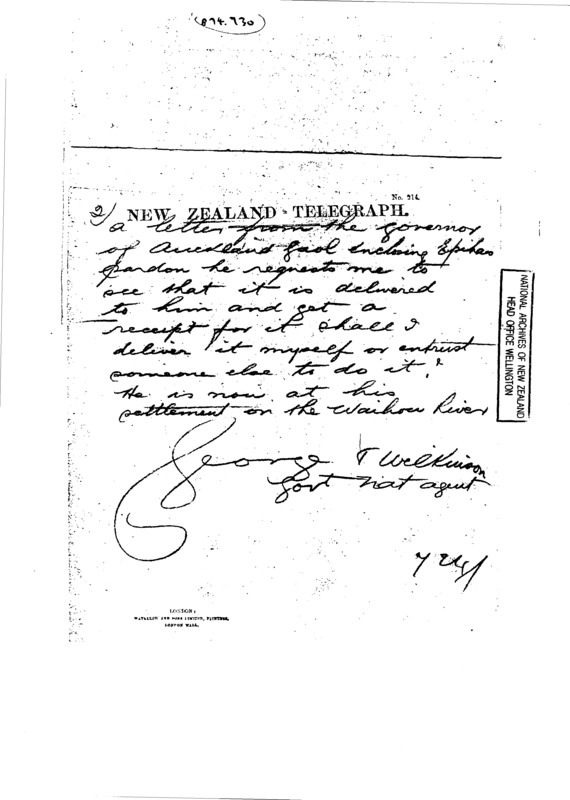 (874.730)
No. 214.
2/ NEW ZEALAND TELEGRAPH.
a letter from the Governor
of Auckland Gaol enclosing Epihas
pardon he requests me to
see that it is delivered
to him and get a
receipt for it shall I
deliver it myself or entrust
someone else to do it?
He is now at his
settlement on the Waihou River
George T Wilkinson
Govt Nat agent
LONDON:
WATERLOW AND SONS LIMITED, PRINTERS,
LONDON WALL.
NATIONAL ARCHIVES OF NEW ZEALAND
HEAD OFFICE WELLINGTON